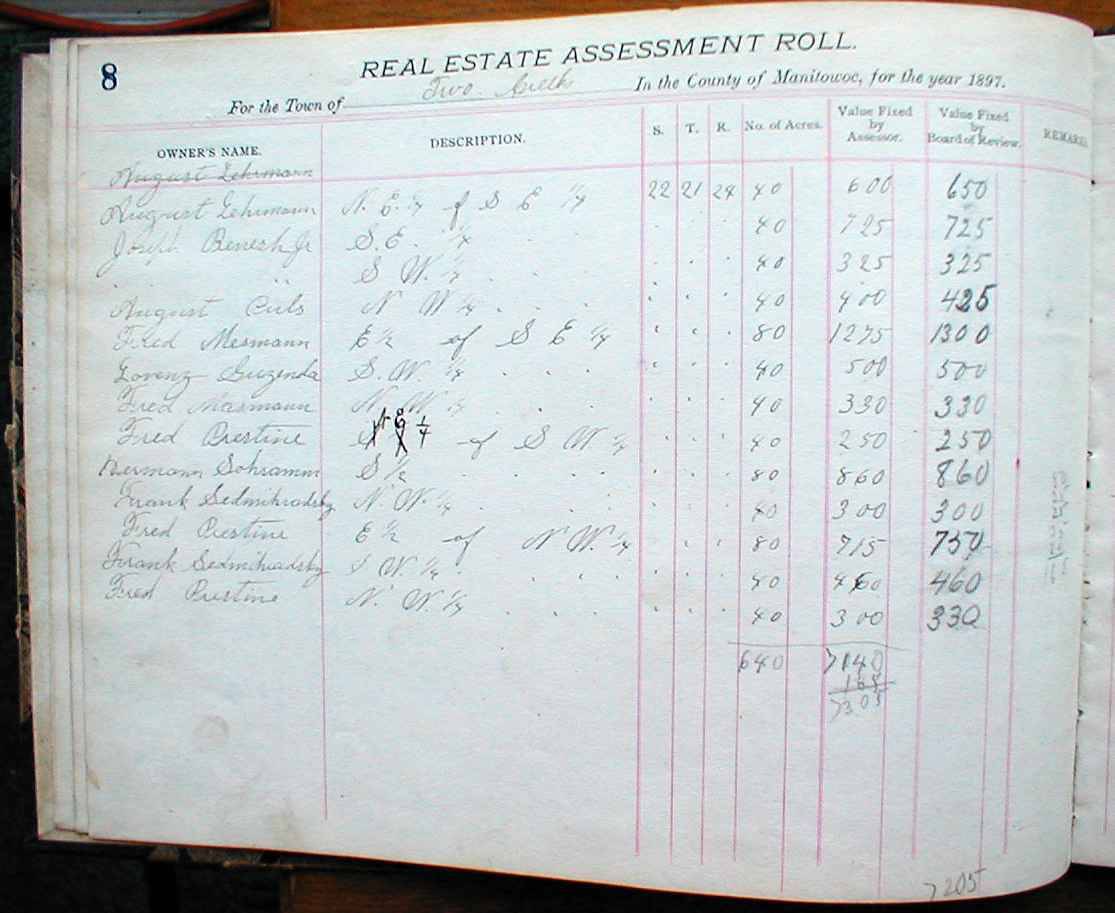 8
REAL ESTATE ASSESSMENT ROLL.
For the Town of Two Creeks In the County of Manitowoc, for the year 1897.
OWNER'S NAME. DESCRIPTION. S. T. R. No. of Acres. Value Fixed by Assessor. Value Fixed by Board of Review. REMARKS
August Lehrmann
August Lehrmann N. E. 1/4 of S E 1/4 22 21 24 40 600 650
Joseph Benesh Jr S. E. 1/4 40 725 725
" S W. 1/4 40 325 325
August N W 1/4 40 400 425
Fred Mesmann E 1/2 of S E 1/4 80 1275 1300
Lorenz Guzenda S. W. 1/4 40 500 500
Fred Masmann N. W 1/4 40 330 330
Fred Prestine N E 1/4 of S W 1/4 40 250 250
Hermann Schramm S 1/2 80 860 860
Frank Sedmihradsky N. W. 1/4 40 300 300
Fred Prestine E 1/2 of N W. 1/4 80 715 750
Frank Sedmihradsky S W. 1/4 40 460 460
Fred Prestine N. W 1/4 40 300 330
640 7140
165
7305
7205